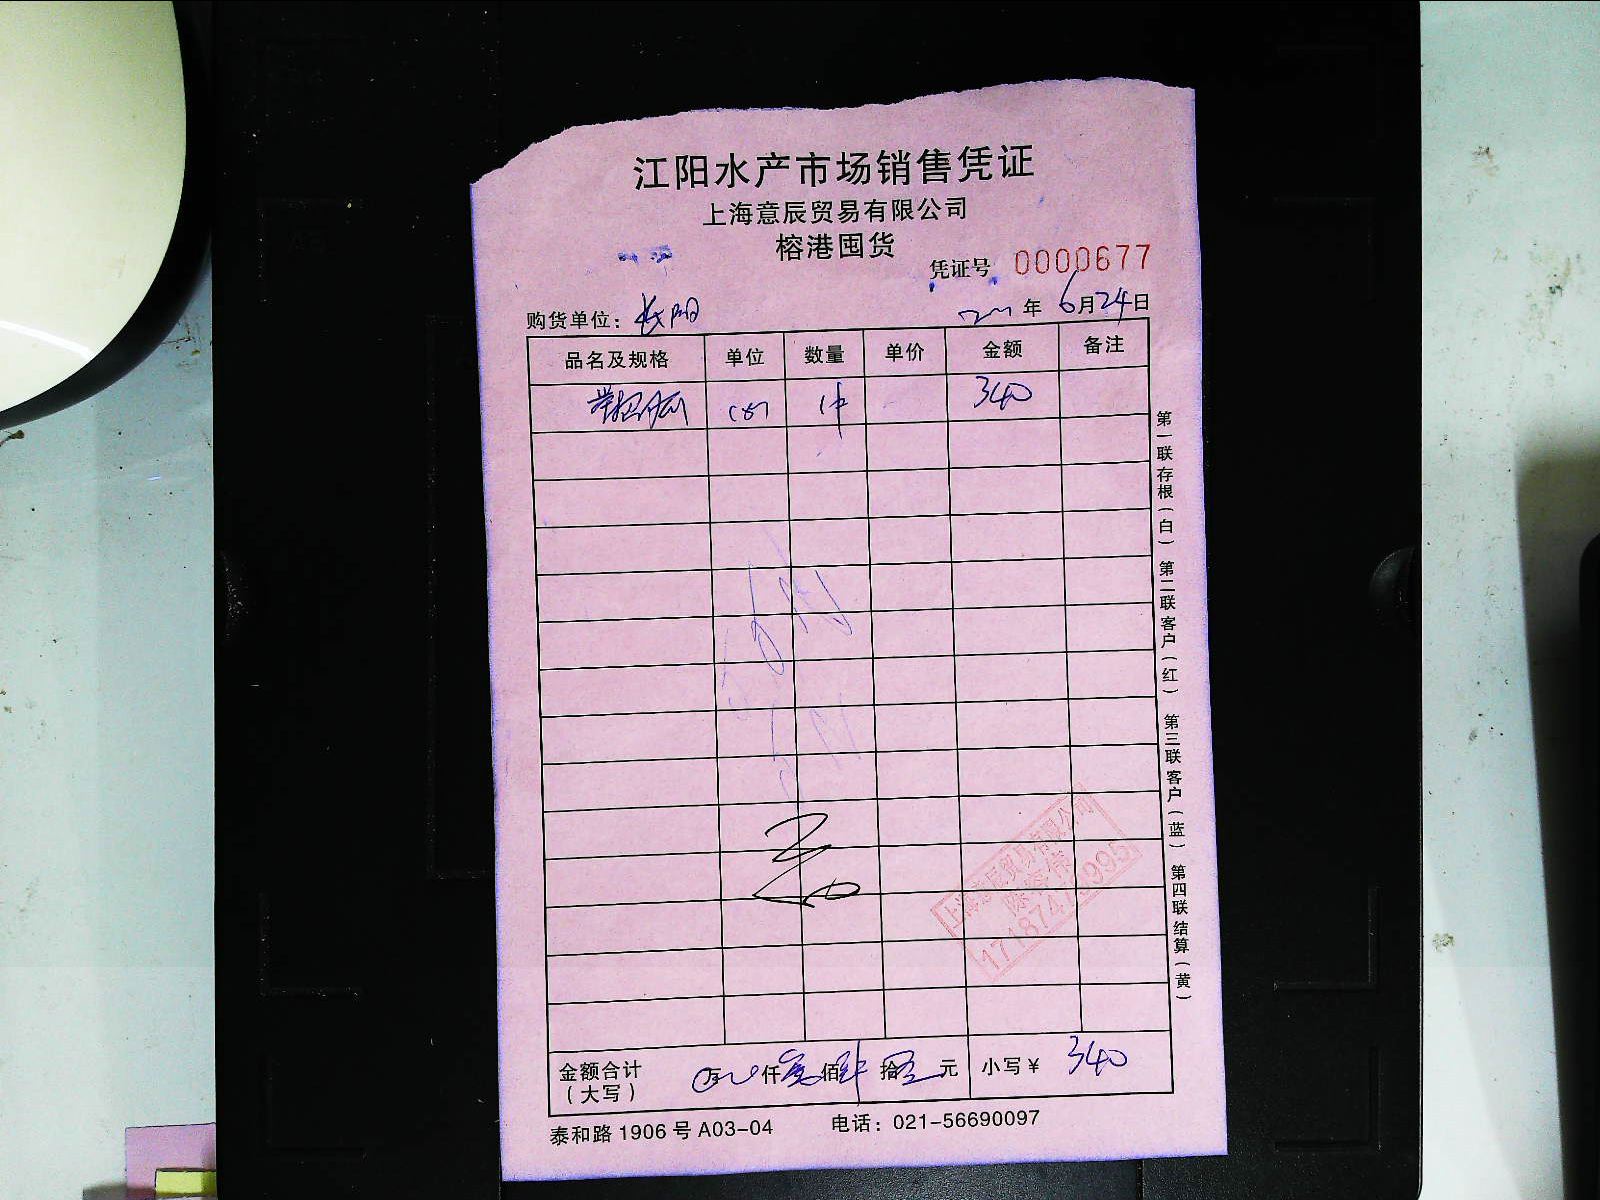 江阳水产市场销售凭证
上海意辰贸易有限公司
榕港囤货
凭证号 0000677
购货单位：长阳 年 6月24日
品名及规格 单位 数量 单价 金额 备注
1件 340
第一联存根（白） 第二联客户（红） 第三联客户（蓝） 第四联结算（黄）
上海意辰贸易有限公司
金额合计（大写） 万 仟 佰 拾 元 小写￥ 340
泰和路 1906 号 A03-04 电话：021-56690097